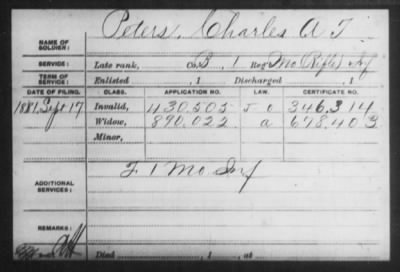 NAME OF SOLDIER: Peters, Charles A. T.
SERVICE: Late rank, Co. B, 1 Reg't Mo. (Rifle) Inf
TERM OF SERVICE: Enlisted , 1 Discharged , 1
DATE OF FILING. CLASS. APPLICATION NO. LAW. CERTIFICATE NO.
1881, Sept 17 Invalid, 430.505 346.314
Widow, 890.022 678.403
Minor,
ADDITIONAL SERVICES: F. 1 Mo. Inf
REMARKS:
Died , 1 , at